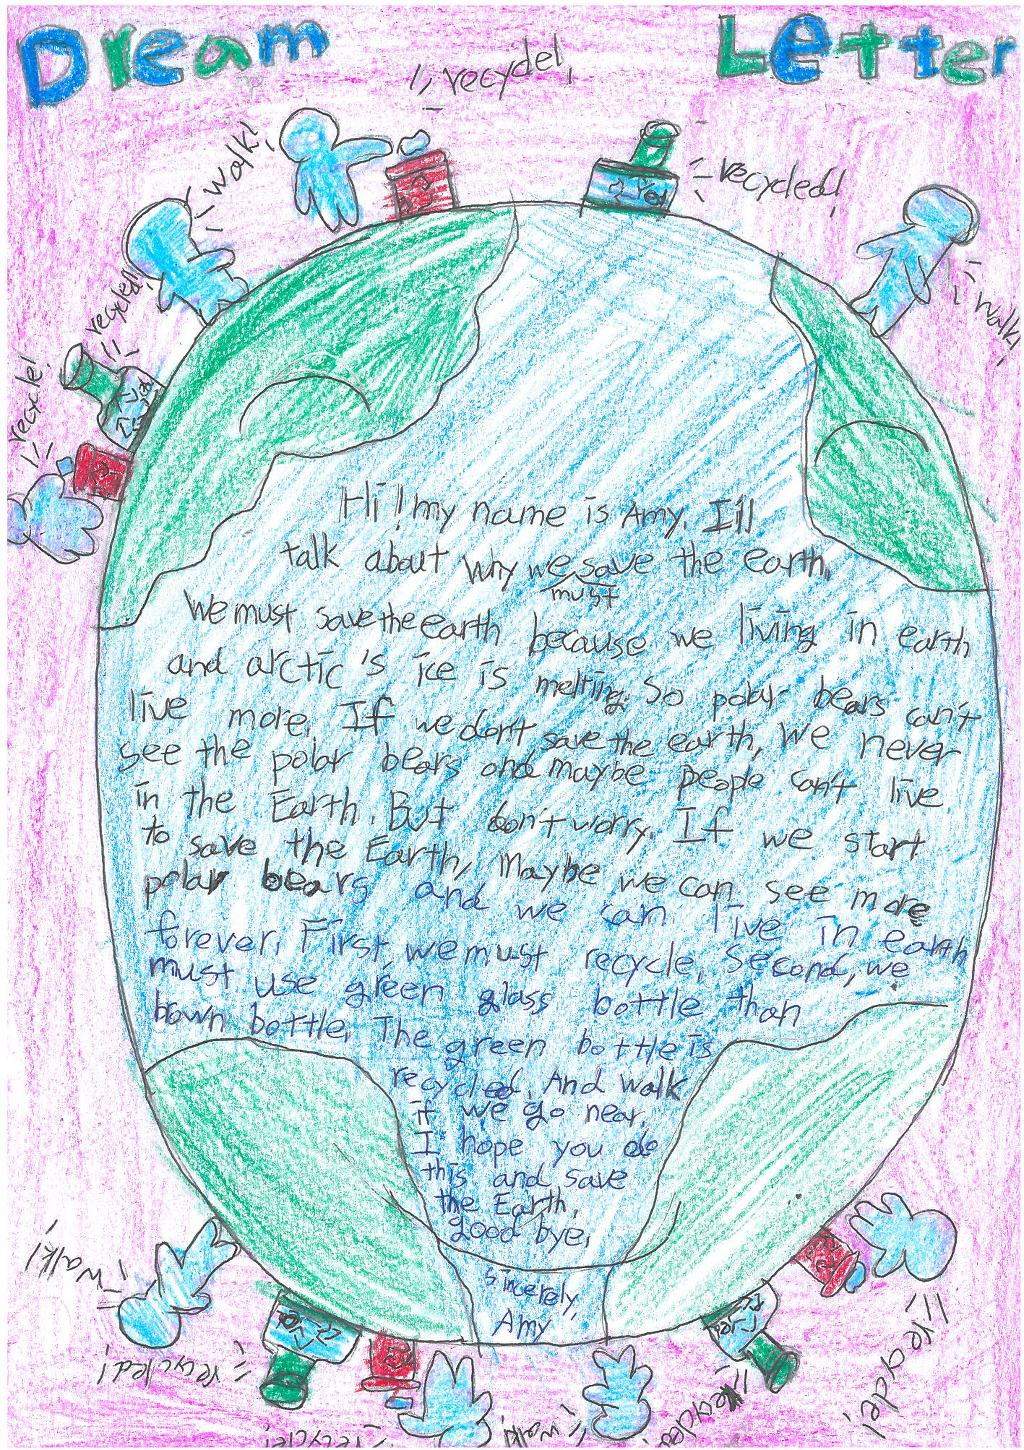 Dream Letter
recycle!
walk!
recycled!
walk!
recycled!
recycle!
Hi! my name is Amy. I'll
talk about why we must save the earth.
We must save the earth because we living in earth
and arctic's ice is melting. So polar bears can't
live more. If we don't save the earth, we never
see the polar bears and maybe people can't live
in the Earth. But don't worry. If we start
to save the Earth, Maybe we can see more
polar bears and we can live in earth
forever. First, we must recycle. Second, we
must use green glass bottle than
bown bottle. The green bottle is
recycled. And walk
if we go near.
I hope you do
this and save
the Earth.
good bye.
Sincerely,
Amy
walk!
recycled!
recycle!
walk!
recycled!
recycle!